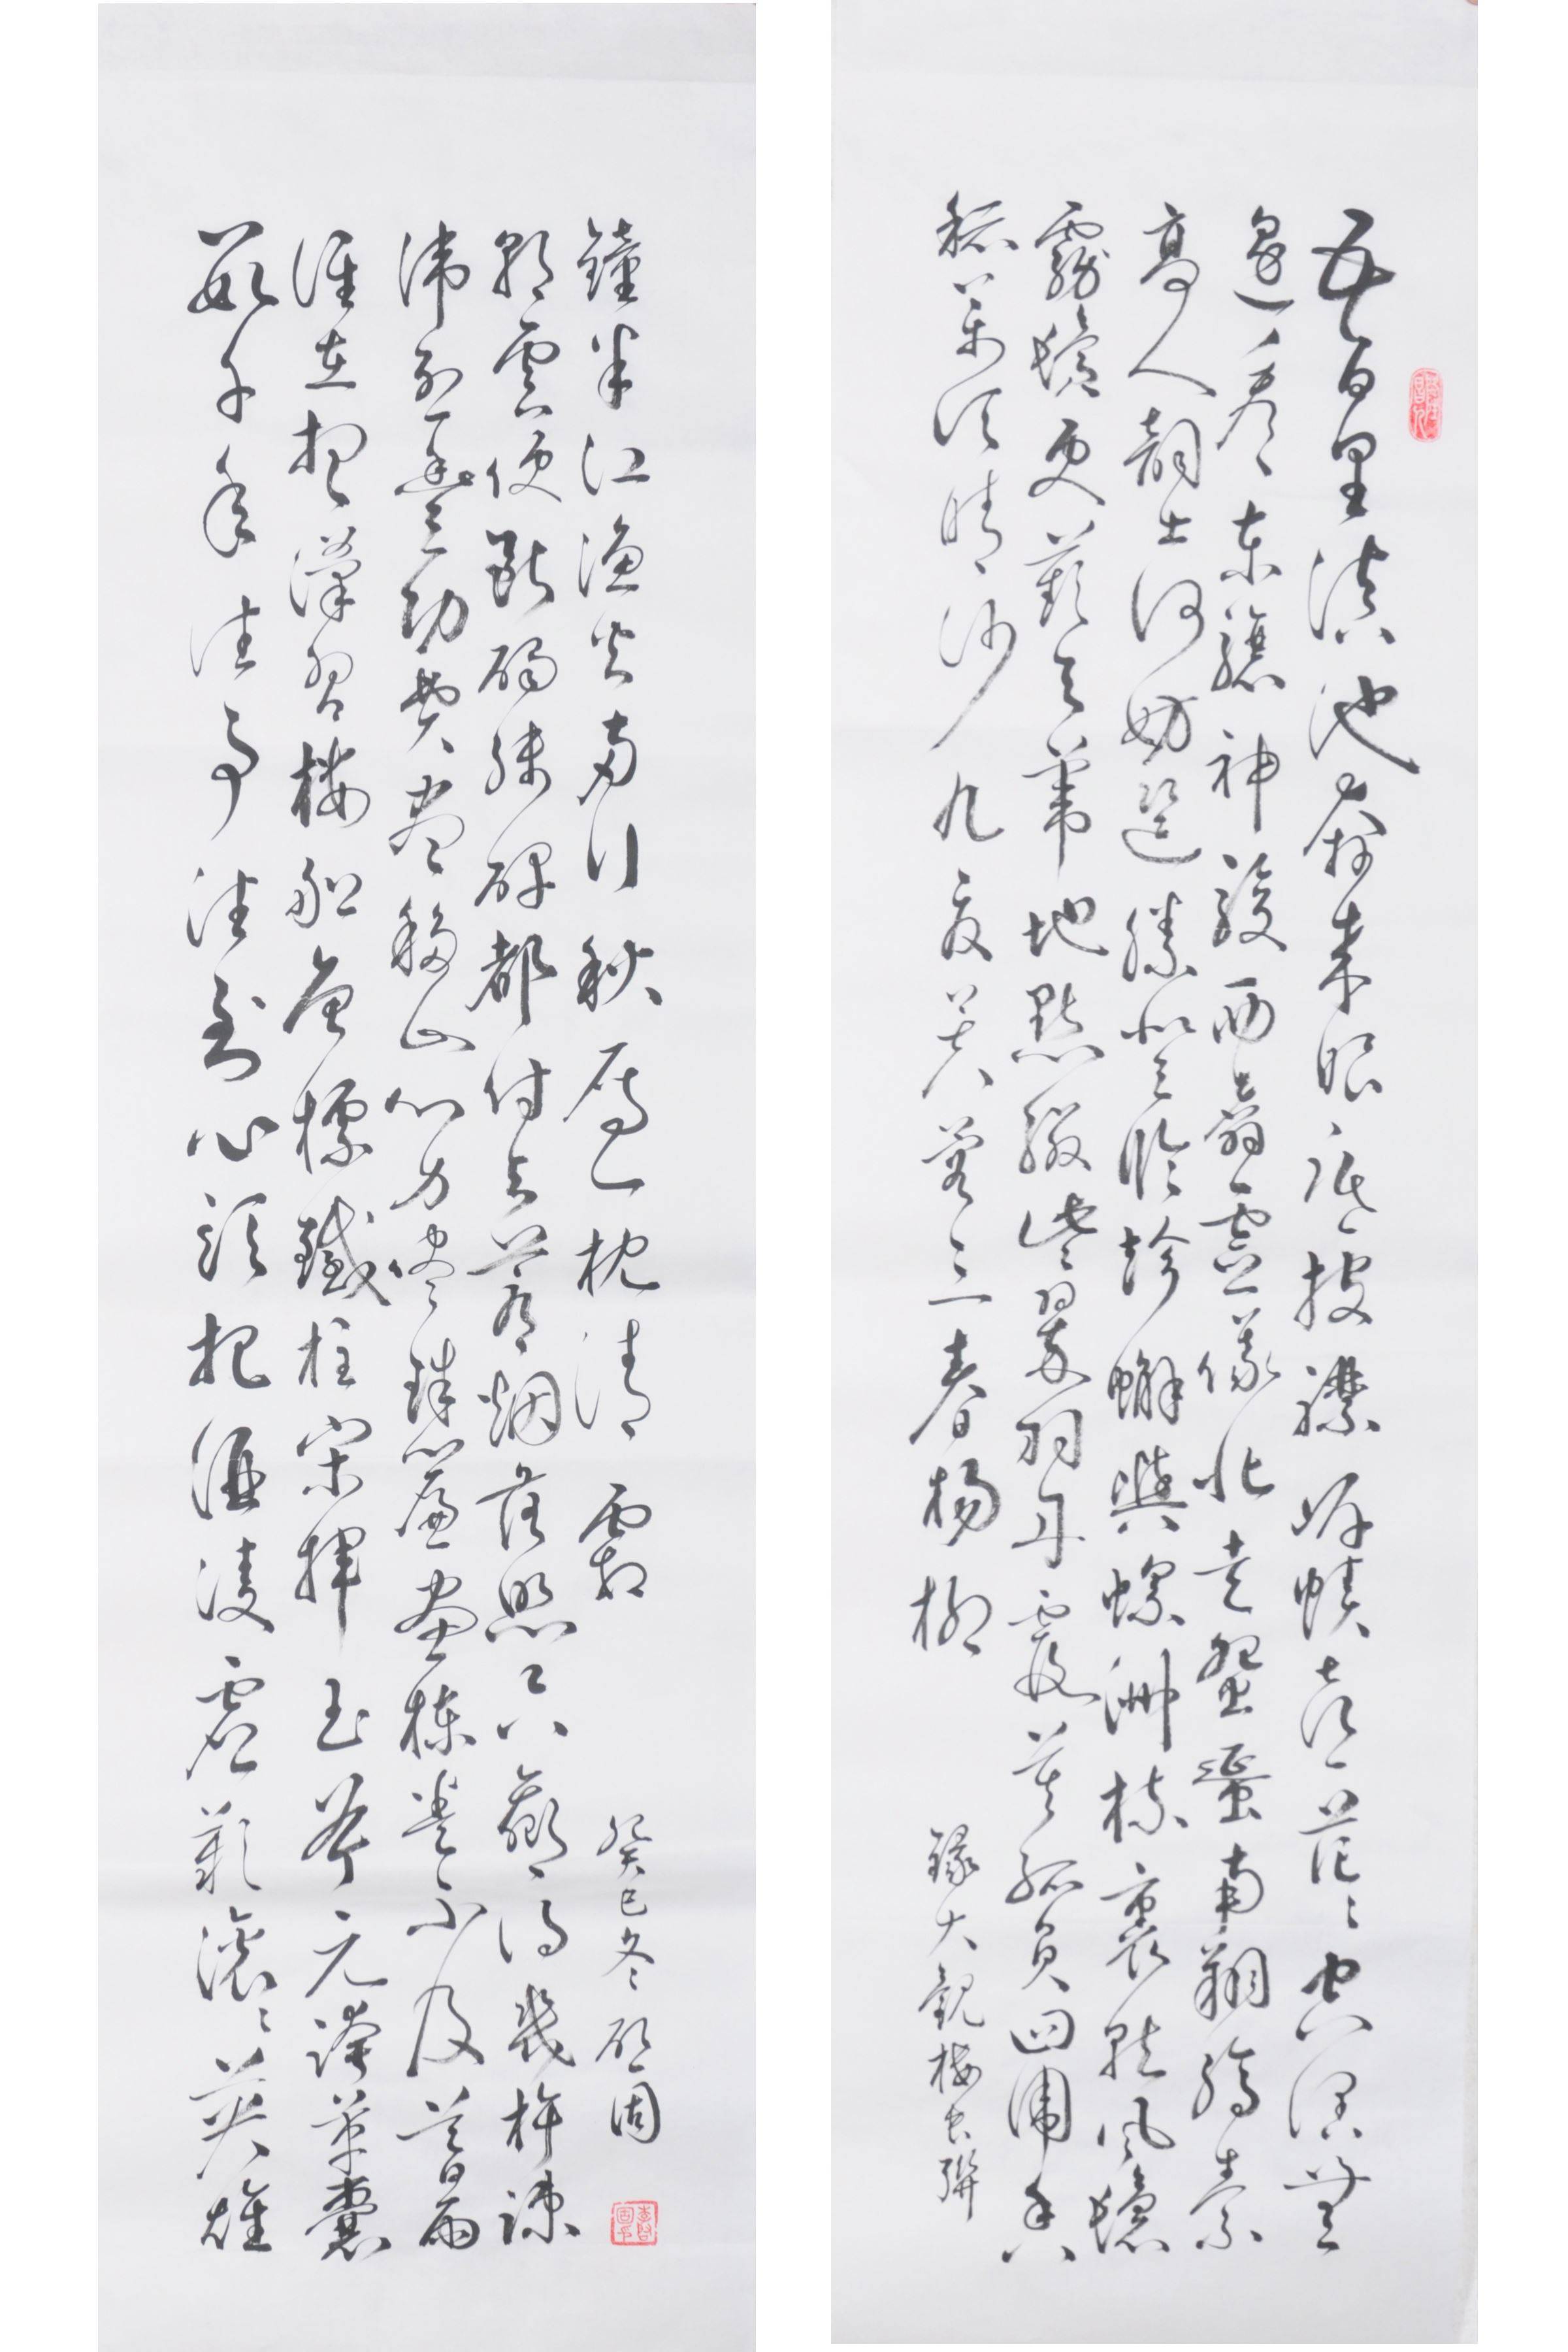 五百里滇池奔來眼底披襟岸幘喜茫々空闊無
邊看東驤神駿西翥靈儀北走蜿蜒南翔縞素
高人韻士何妨選勝登臨趁蠏嶼螺洲梳裹就風鬟
霧鬢更蘋天葦地點綴些翠羽丹霞莫孤負四圍香
稻萬頃晴沙九夏芙蓉三春楊柳
錄大觀楼長聯
數千年往事注到心頭把酒凌虛歎滾々英雄
誰在想漢習楼船唐標鐵柱宋揮玉斧元跨革囊
偉烈豐功費盡移山心力儘珠簾畫棟卷不及暮雨
朝雲便斷碣殘碑都付與蒼烟落照只贏得幾杵疎
鐘半江漁火兩行秋雁一枕清霜
癸巳冬啟固